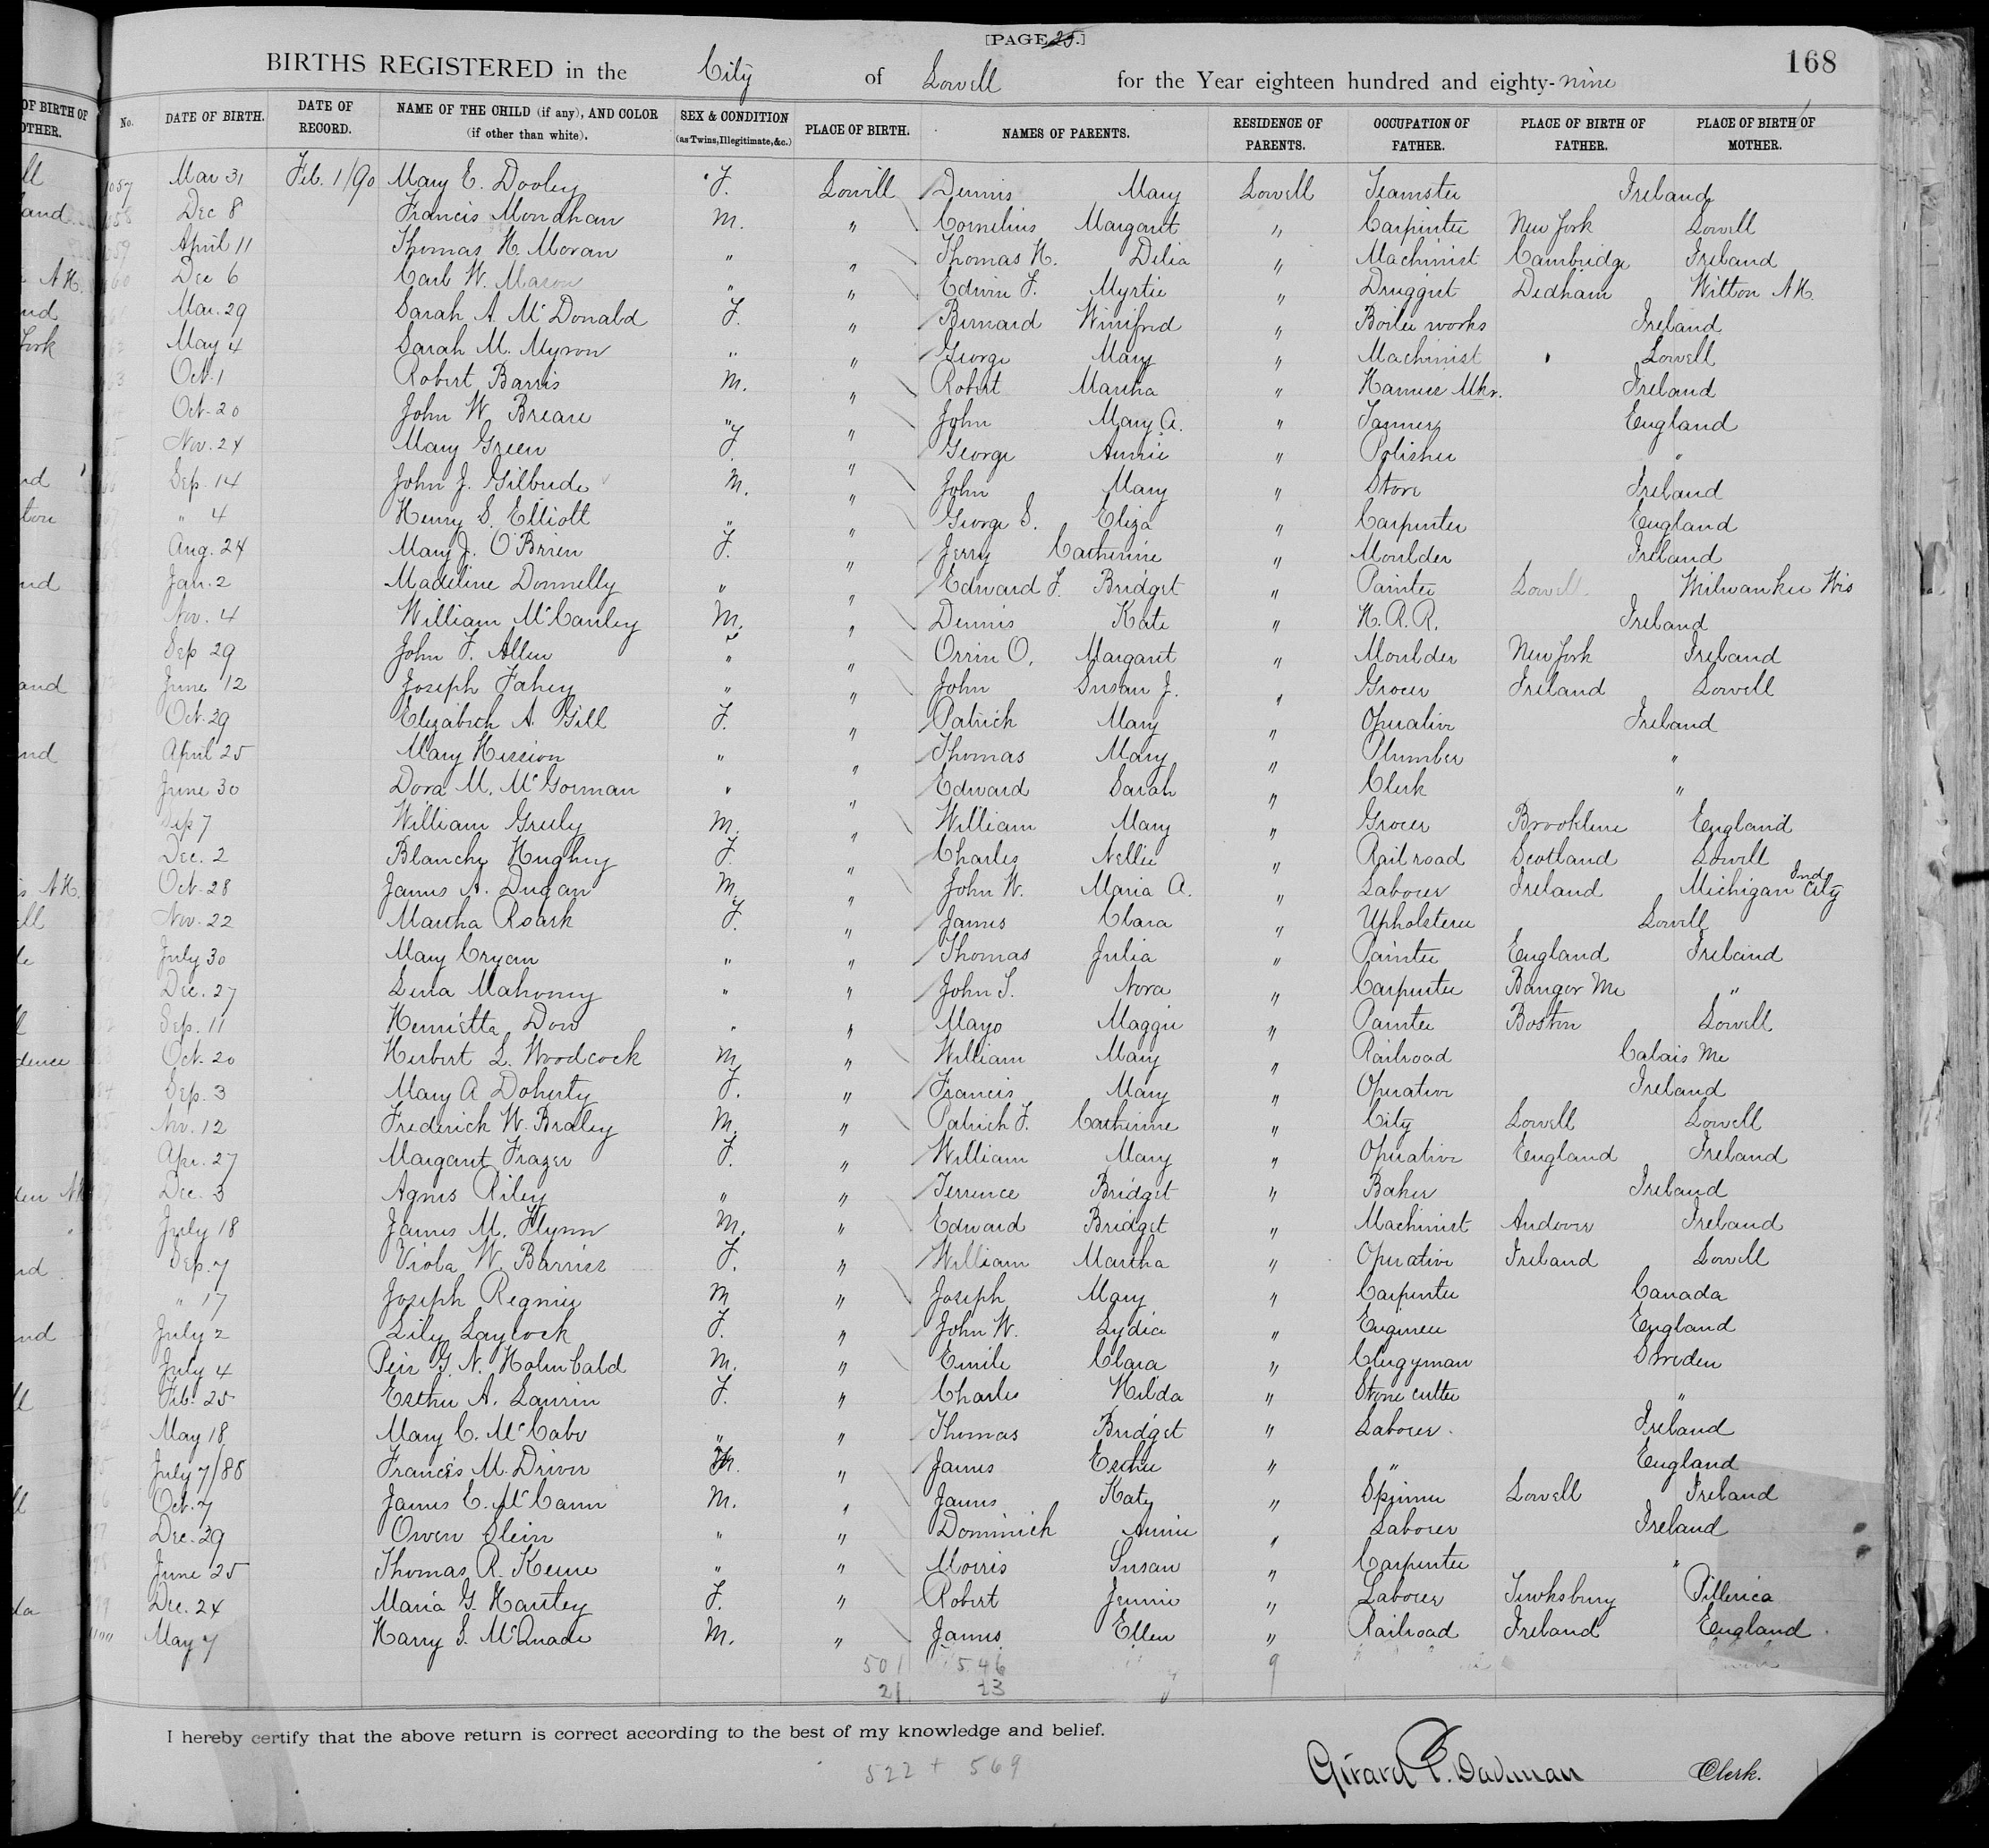 [PAGE 25.]
168
BIRTHS REGISTERED in the City of Lowell for the Year eighteen hundred and eighty-nine
No. DATE OF BIRTH. DATE OF RECORD. NAME OF THE CHILD (if any), AND COLOR (if other than white). SEX & CONDITION (as Twins, Illegitimate, &c.) PLACE OF BIRTH. NAMES OF PARENTS. RESIDENCE OF PARENTS. OCCUPATION OF FATHER. PLACE OF BIRTH OF FATHER. PLACE OF BIRTH OF MOTHER.
1057 Mar 31 Feb. 1/90 Mary E. Dooley F. Lowell Dennis Mary Lowell Teamster Ireland
58 Dec 8 Francis Mondhan M. " Cornelius Margaret " Carpenter New York Lowell
59 April 11 Thomas H. Moran " " Thomas H. Delia " Machinist Cambridge Ireland
60 Dec 6 Carl W. Mason " " Edwin F. Myrtie " Druggist Dedham Wilton N.H.
Mar. 29 Sarah A. McDonald F. " Bernard Winifred " Boiler works Ireland
May 4 Sarah M. Myron " " George Mary " Machinist Lowell
Oct. 1 Robert Barris M. " Robert Martha " Harness Mkr. Ireland
Oct. 20 John W. Breare " " John Mary A. " Tanner England
Nov. 24 Mary Green F. " George Annie " Polisher "
Sep. 14 John J. Gilbride M. " John Mary " Store Ireland
" 4 Henry S. Elliott " " George S. Eliza " Carpenter England
Aug. 24 Mary J. O'Brien F. " Jerry Catherine " Moulder Ireland
Jan. 2 Madeline Donnelly " " Edward F. Bridget " Painter Lowell Milwaukee Wis
Nov. 4 William McCauley M. " Dennis Kate " H.R.R. Ireland
Sep 29 John F. Allen " " Orrin O. Margaret " Moulder New York Ireland
June 12 Joseph Fahey " " John Susan J. " Grocer Ireland Lowell
Oct. 29 Elizabeth A. Gill F. " Patrick Mary " Operative Ireland
April 25 Mary Hession " " Thomas Mary " Plumber "
June 30 Dora M. McGorman " " Edward Sarah " Clerk "
Sep 7 William Greely M. " William Mary " Grocer Brookline England
Dec. 2 Blanche Hughey F. " Charles Nellie " Railroad Scotland Lowell
Oct. 28 James A. Dugan M. " John W. Maria A. " Laborer Ireland Michigan City Ind
Nov. 22 Martha Roark F. " James Clara " Upholsterer Lowell
July 30 Mary Cryan " " Thomas Julia " Painter England Ireland
Dec. 27 Lena Mahoney " " John S. Nora " Carpenter Bangor Me "
Sep. 11 Henrietta Dow " " Mayo Maggie " Painter Boston Lowell
Oct. 20 Herbert L. Woodcock M. " William Mary " Railroad Calais Me
Sep. 3 Mary A Doherty F. " Francis Mary " Operative Ireland
Nv. 12 Frederick W. Braley M. " Patrick F. Catherine " City Lowell Lowell
Apr. 27 Margaret Frazer F. " William Mary " Operative England Ireland
Dec. 3 Agnes Riley " " Terrence Bridget " Baker Ireland
July 18 James M. Flynn M. " Edward Bridget " Machinist Andover Ireland
Sep. 7 Viola W. Barrier F. " William Martha " Operative Ireland Lowell
" 17 Joseph Regnier M " Joseph Mary " Carpenter Canada
July 2 Lily Laylock F. " John W. Lydia " Engineer England
July 4 Peir G. N. Holmbald M. " Emile Clara " Clergyman Sweden
Feb. 25 Esther A. Laurin F. " Charles Hilda " Stone cutter "
May 18 Mary C. McCabe " " Thomas Bridget " Laborer. Ireland
July 7/88 Francis M. Driver M. " James Esther " " England
Oct. 7 James E. McCann M. " James Katy " Spinner Lowell Ireland
Dec. 29 Owen Slein " " Dominick Annie " Laborer Ireland
June 25 Thomas R. Keene " " Morris Susan " Carpenter "
Dec. 24 Maria G. Hantey F. " Robert Jennie " Laborer Tewksbury Billerica
May 7 Harry S. McQuade M. " James Ellen " Railroad Ireland England
501 546 9
21 23
I hereby certify that the above return is correct according to the best of my knowledge and belief.
522 + 569
Girard P. Dadman Clerk.